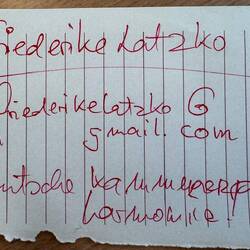 riederike Latzko
riederikelatzko @
gmail.com
utsche Kammer
harmonie!